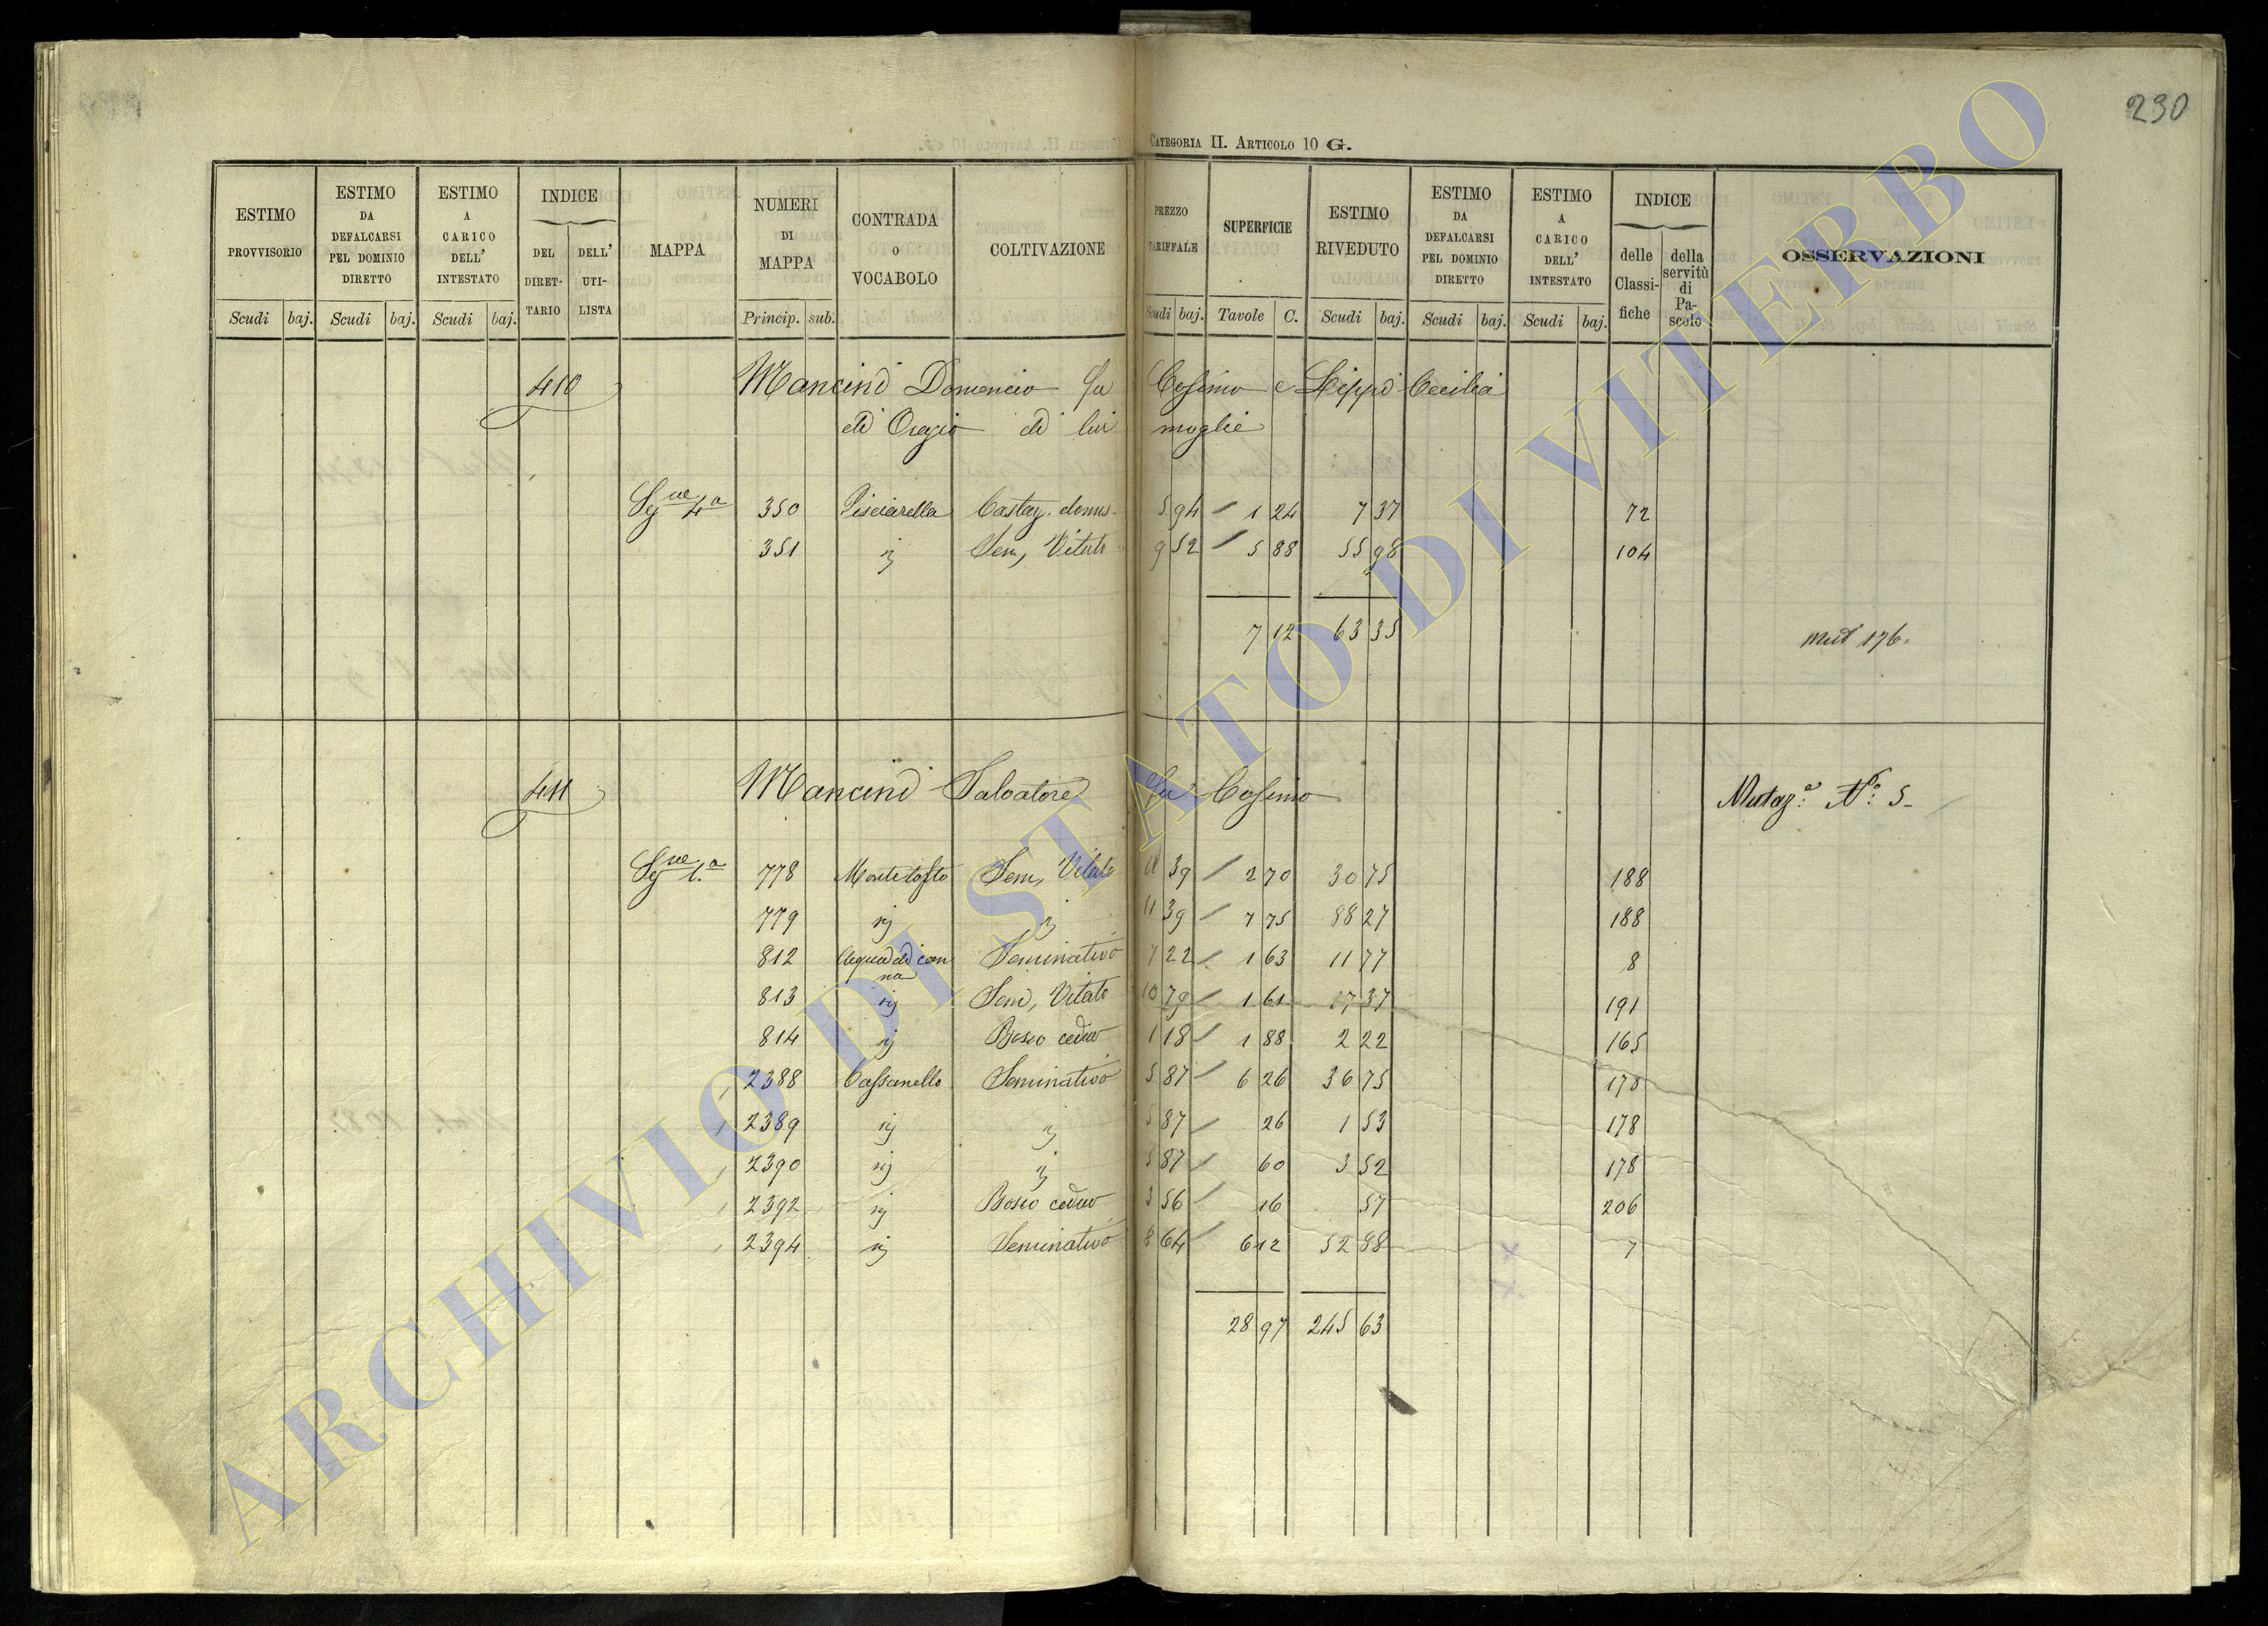 230
CATEGORIA II. ARTICOLO 10 G.
ESTIMO PROVVISORIO
ESTIMO DA DEFALCARSI PEL DOMINIO DIRETTO
ESTIMO A CARICO DELL' INTESTATO
INDICE
DEL DIRET-TARIO
DELL' UTI-LISTA
MAPPA
NUMERI DI MAPPA
CONTRADA O VOCABOLO
COLTIVAZIONE
PREZZO TARIFFALE
SUPERFICIE
ESTIMO RIVEDUTO
ESTIMO DA DEFALCARSI PEL DOMINIO DIRETTO
ESTIMO A CARICO DELL' INTESTATO
INDICE
delle Classi-fiche
della servitù di Pa-scolo
OSSERVAZIONI
Scudi baj. Scudi baj. Scudi baj. Princip. sub. Scudi baj. Tavole C. Scudi baj. Scudi baj. Scudi baj.
410 Mancini Domenico fu Cosimo e Lippi Cecilia
di Orazio di lui moglie
Sez.ne 4a 350 Pisciarella Castag. domes. 5 94 1 24 7 37 72
351 ij Sem, Vitato 9 52 5 88 55 98 104
7 12 63 35 mut 176.
411 Mancini Salvatore fu Cosimo Mutaz.e N.o 5
Sez.ne 1.a 778 Montetosto Sem, Vitato 11 39 2 70 30 75 188
779 ij ij 11 39 7 75 88 27 188
812 Acqua di canna Seminativo 7 22 1 63 11 77 8
813 ij Sem, Vitato 10 79 1 61 17 37 191
814 ij Bosco ceduo 1 18 1 88 2 22 165
2388 Cassanello Seminativo 5 87 6 26 36 75 178
2389 ij ij 5 87 26 1 53 178
2390 ij ij 5 87 60 3 52 178
2392 ij Bosco ceduo 3 56 16 57 206
2394 ij Seminativo 8 64 6 12 52 88 7
28 97 245 63
ARCHIVIO DI STATO DI VITERBO